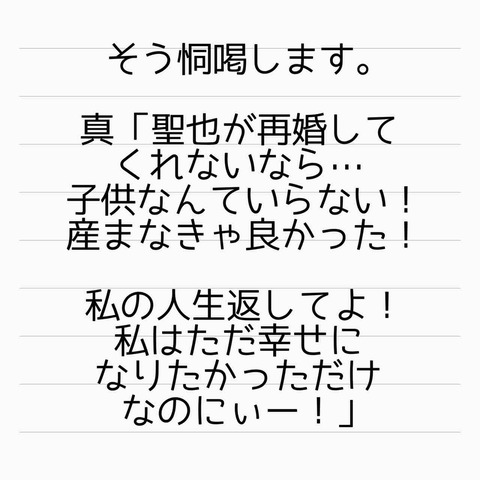 そう恫喝します。
真「聖也が再婚して
くれないなら…
子供なんていらない！
産まなきゃ良かった！
私の人生返してよ！
私はただ幸せに
なりたかっただけ
なのにぃー！」